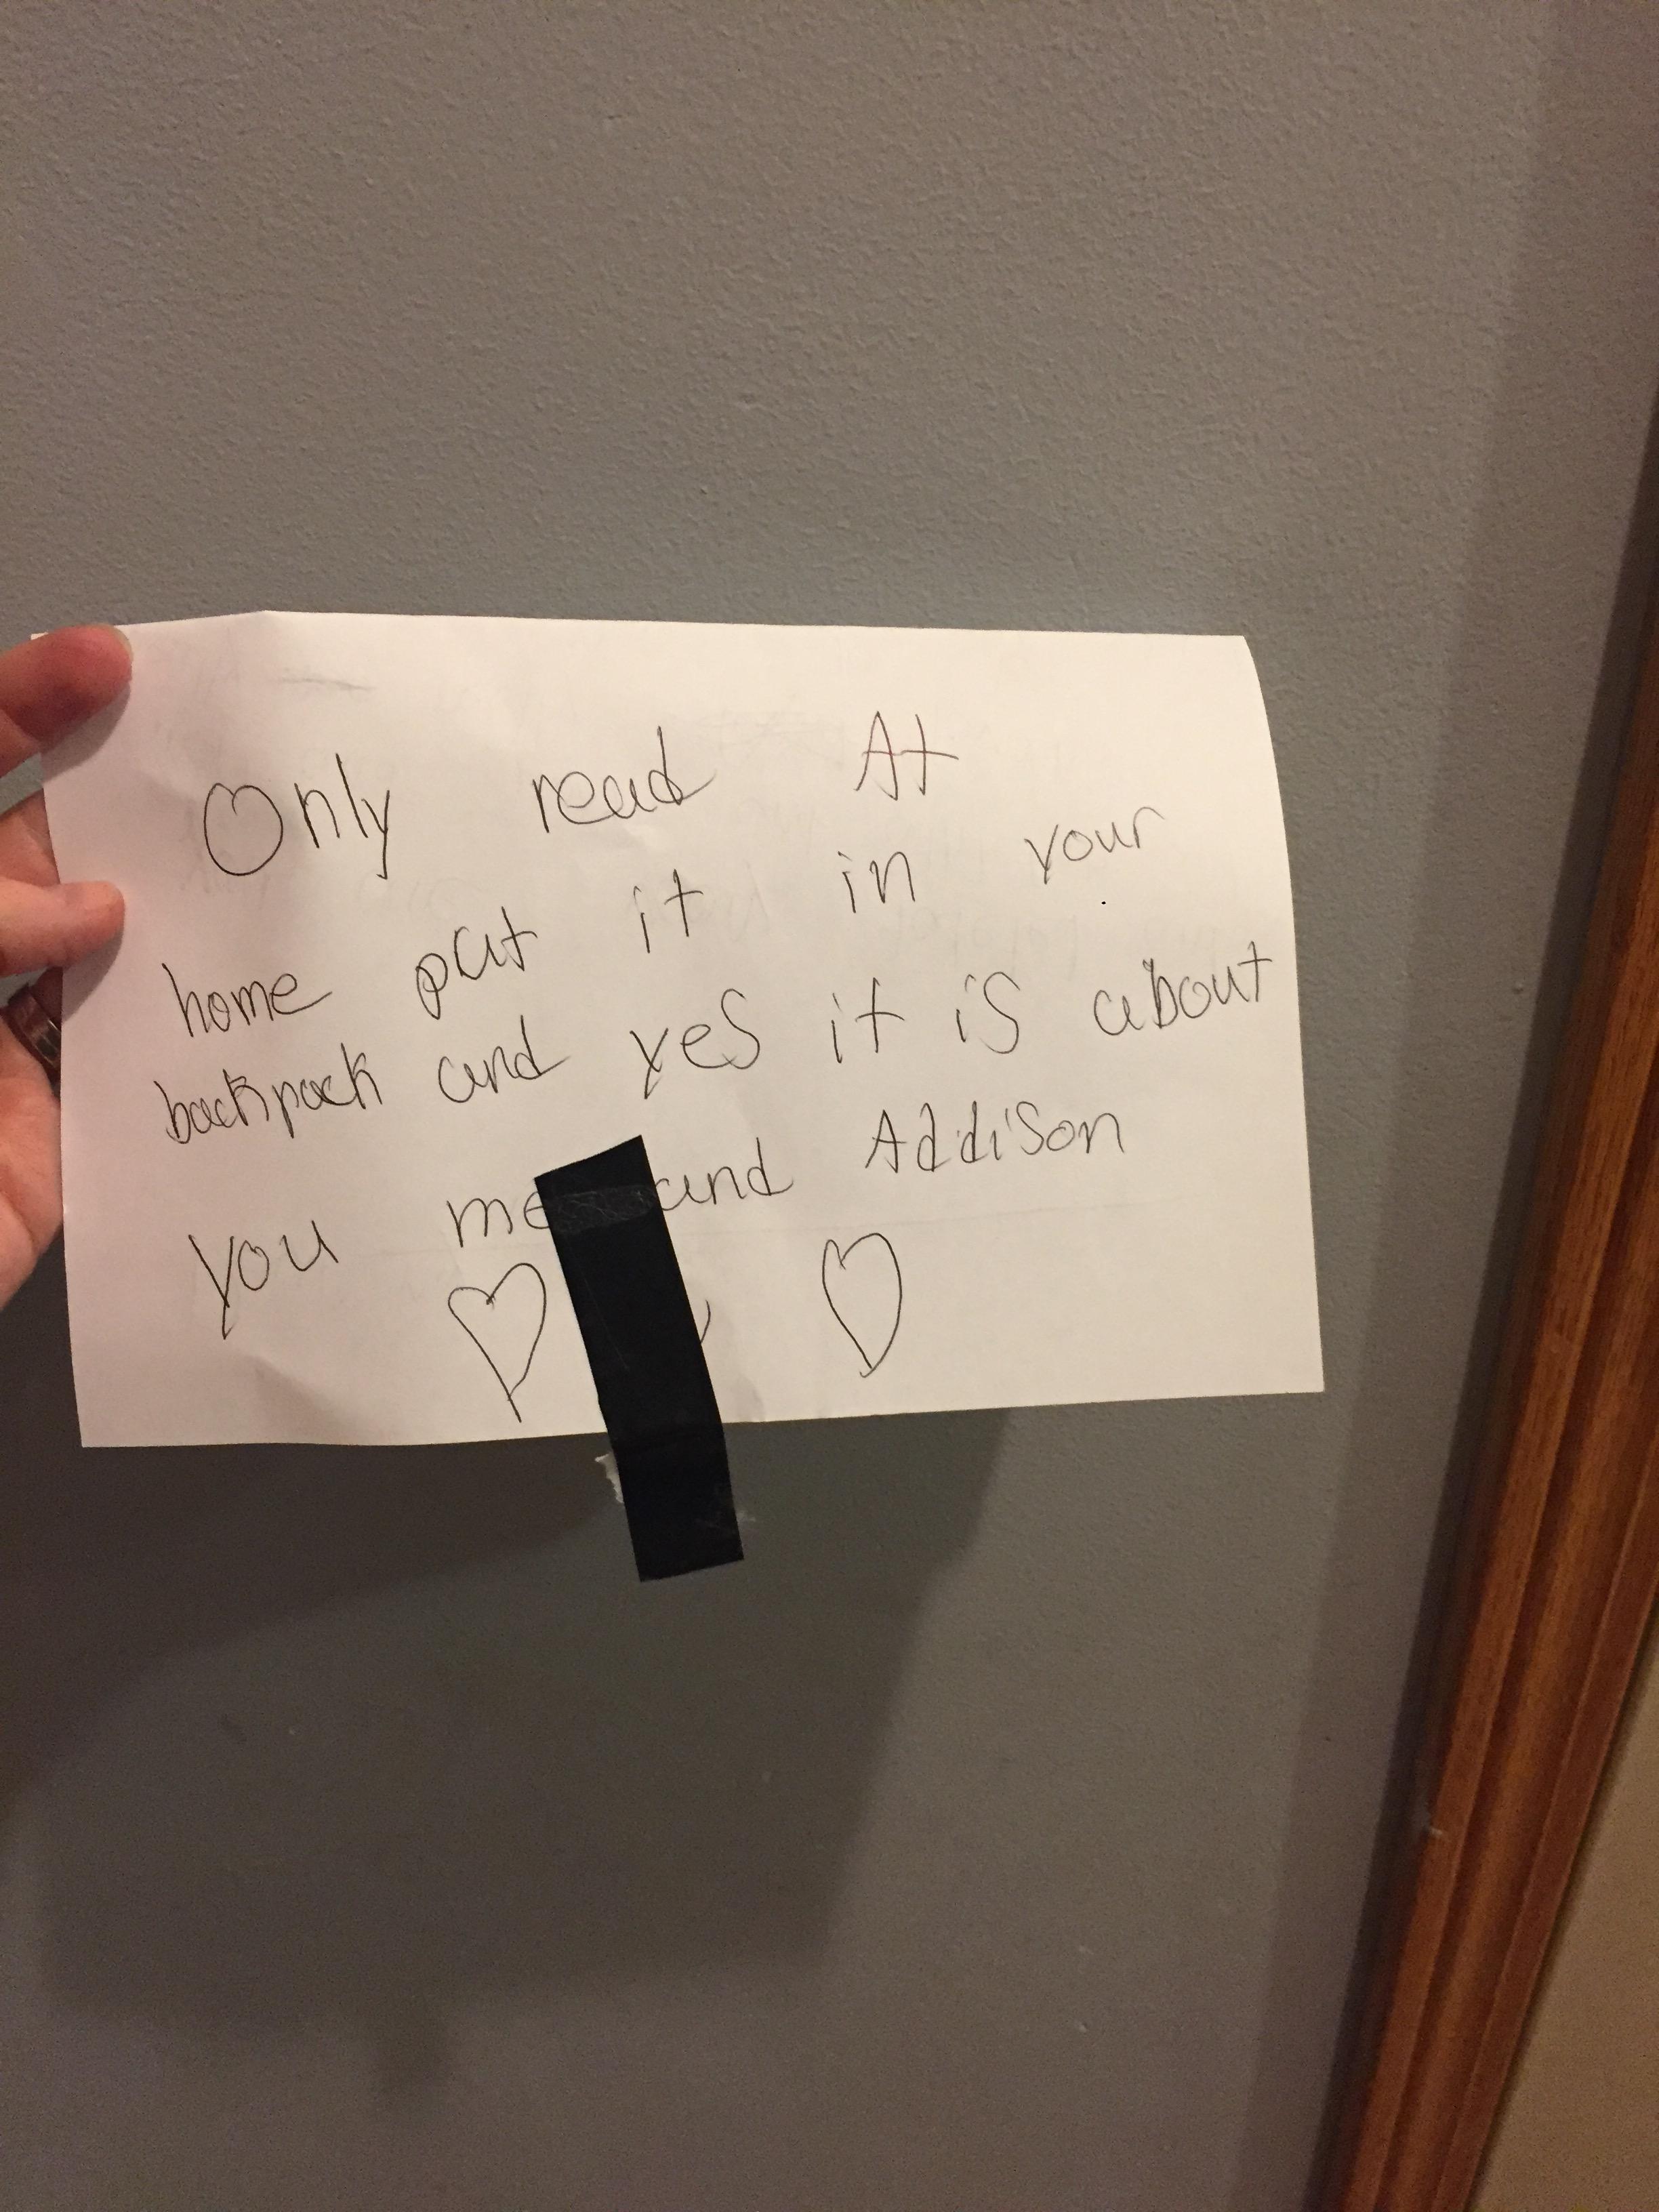 Only read At
home pat it in your
backpack and yes it is about
you me and Addison